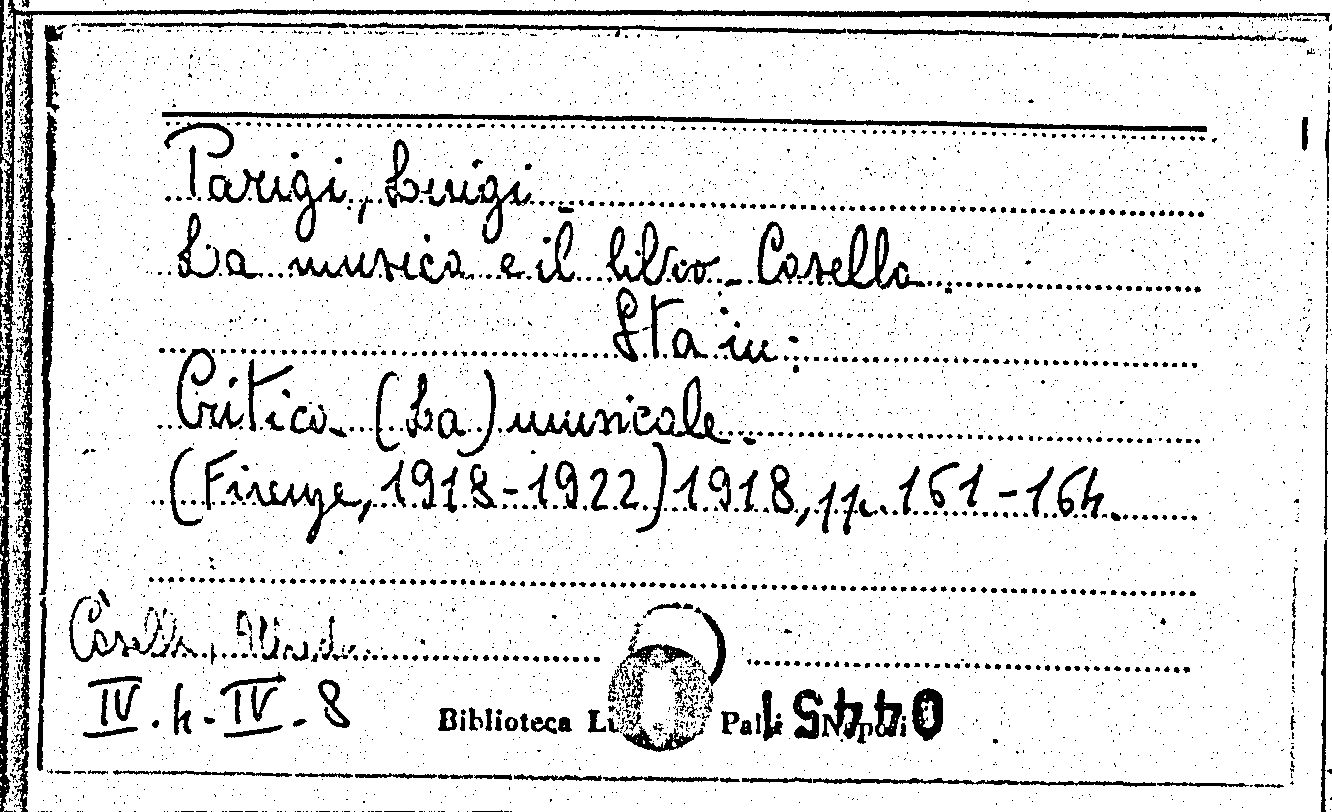 Parigi, Luigi _
La musica e il libro _ Casella.
Sta in:
Critica _ (La) musicale _
(Firenze, 1918-1922) 1918, pp. 161-164.
Casella, Alfredo
IV.4-IV-8
Biblioteca Napoli